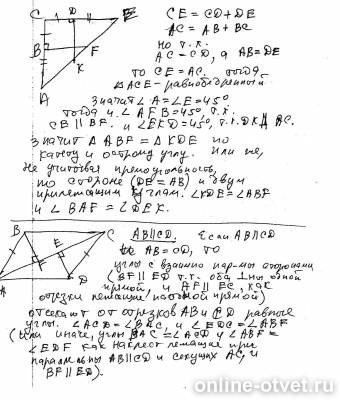 C D E
CE = CD + DE
AC = AB + BC
но т.к.
AC = CD, а AB = DE
B F
K
то CE = AC. тогда
△ACE - равнобедренный
A
значит ∠A = ∠E = 45°
тогда и ∠AFB = 45°, т.к.
CE ∥ BF. и ∠EKD = 45°, т.к. DK ∥ AC.
значит △ABF = △KDE по
катету и острому углу. Или же,
не учитывая прямоугольность,
по стороне (DE = AB) и двум
прилежащим углам. ∠KDE = ∠ABF
и ∠BAF = ∠DEK.
B C
E
F
A D
AB∥CD. Если AB∥CD
AB = CD, то
углы с взаимно пар-ми сторонами
(BF ∥ ED т.к. оба ⊥ны одной
прямой, и AF ∥ EC, как
отрезки лежащие на одной прямой)
отсекают от отрезков AB и CD равные
углы. ∠ACD = ∠BAC, и ∠EDC = ∠ABF
(если иначе, углы BAC = ∠ACD и ∠ABF =
∠EDF как накрест лежащие при
параллельны AB∥CD и секущих AC, и
BF ∥ ED).
online-otvet.ru